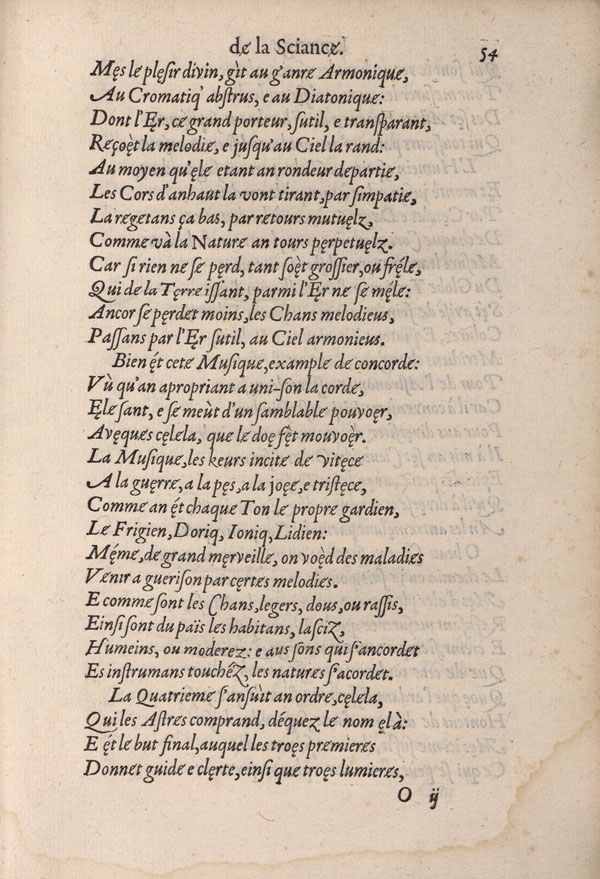 de la Sciancę.
54
Męs le plęsir divin, gìt au g'anre Armonique,
Au Cromatiq' abstrus, e au Diatonique:
Dont l'Ęr, ce grand porteur, sutil, e transparant,
Reçoèt la melodie, e jusqu'au Ciel la rand:
Au moyen qu'ęle etant an rondeur departie,
Les Cors d'anhaut la vont tirant, par simpatie,
La regetans ça bas, par retours mutuęlz,
Comme và la Nature an tours pęrpetuęlz.
Car si rien ne se pęrd, tant soèt grossier, ou fręle,
Qui de la Tęrre issant, parmi l'Ęr ne se męle:
Ancor se pęrdet moins, les Chans melodieus,
Passans par l'Ęr sutil, au Ciel armonieus.
Bien ę́t cete Musique, example de concorde:
Vù qu'an apropriant a uni-son la corde,
Ęle sant, e se meùt d'un samblable pouvoęr,
Avęques cęlela, que le doę fèt mouvoèr.
La Musique, les keurs incite de vitęce
A la guęrre, a la pęs, a la joęe, e tristęce,
Comme an ę́t chaque Ton le propre gardien,
Le Frigien, Doriq, Ioniq, Lidien:
Méme, de grand męrveille, on voèd des maladies
Venir a guerison par cęrtes melodies.
E comme sont les Chans, legers, dous, ou rassis,
Einsi sont du païs les habitans, lasciz,
Humeins, ou moderez: e aus sons qui s'ancordet
Es instrumans touchéz, les natures s'acordet.
La Quatrieme s'ansùit an ordre, cęlela,
Qui les Astres comprand, déquez le nom ęl à:
E ę́t le but final, auquel les troęs premieres
Donnet guide e clęrte, einsi que troęs lumieres,
O ij